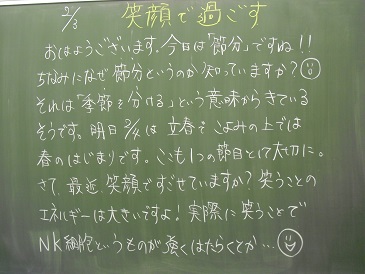 2/3 笑顔で過ごす
おはようございます。今日は「節分」ですね!!
ちなみになぜ節分というのか知っていますか?
それは「季節を分ける」という意味からきている
そうです。明日2/4は立春でこよみの上では
春のはじまりです。ここも1つの節目として大切に。
さて、最近、笑顔ですごせていますか?笑うことの
エネルギーは大きいですよ!実際に笑うことで
NK細胞というものが強くはたらくとか…